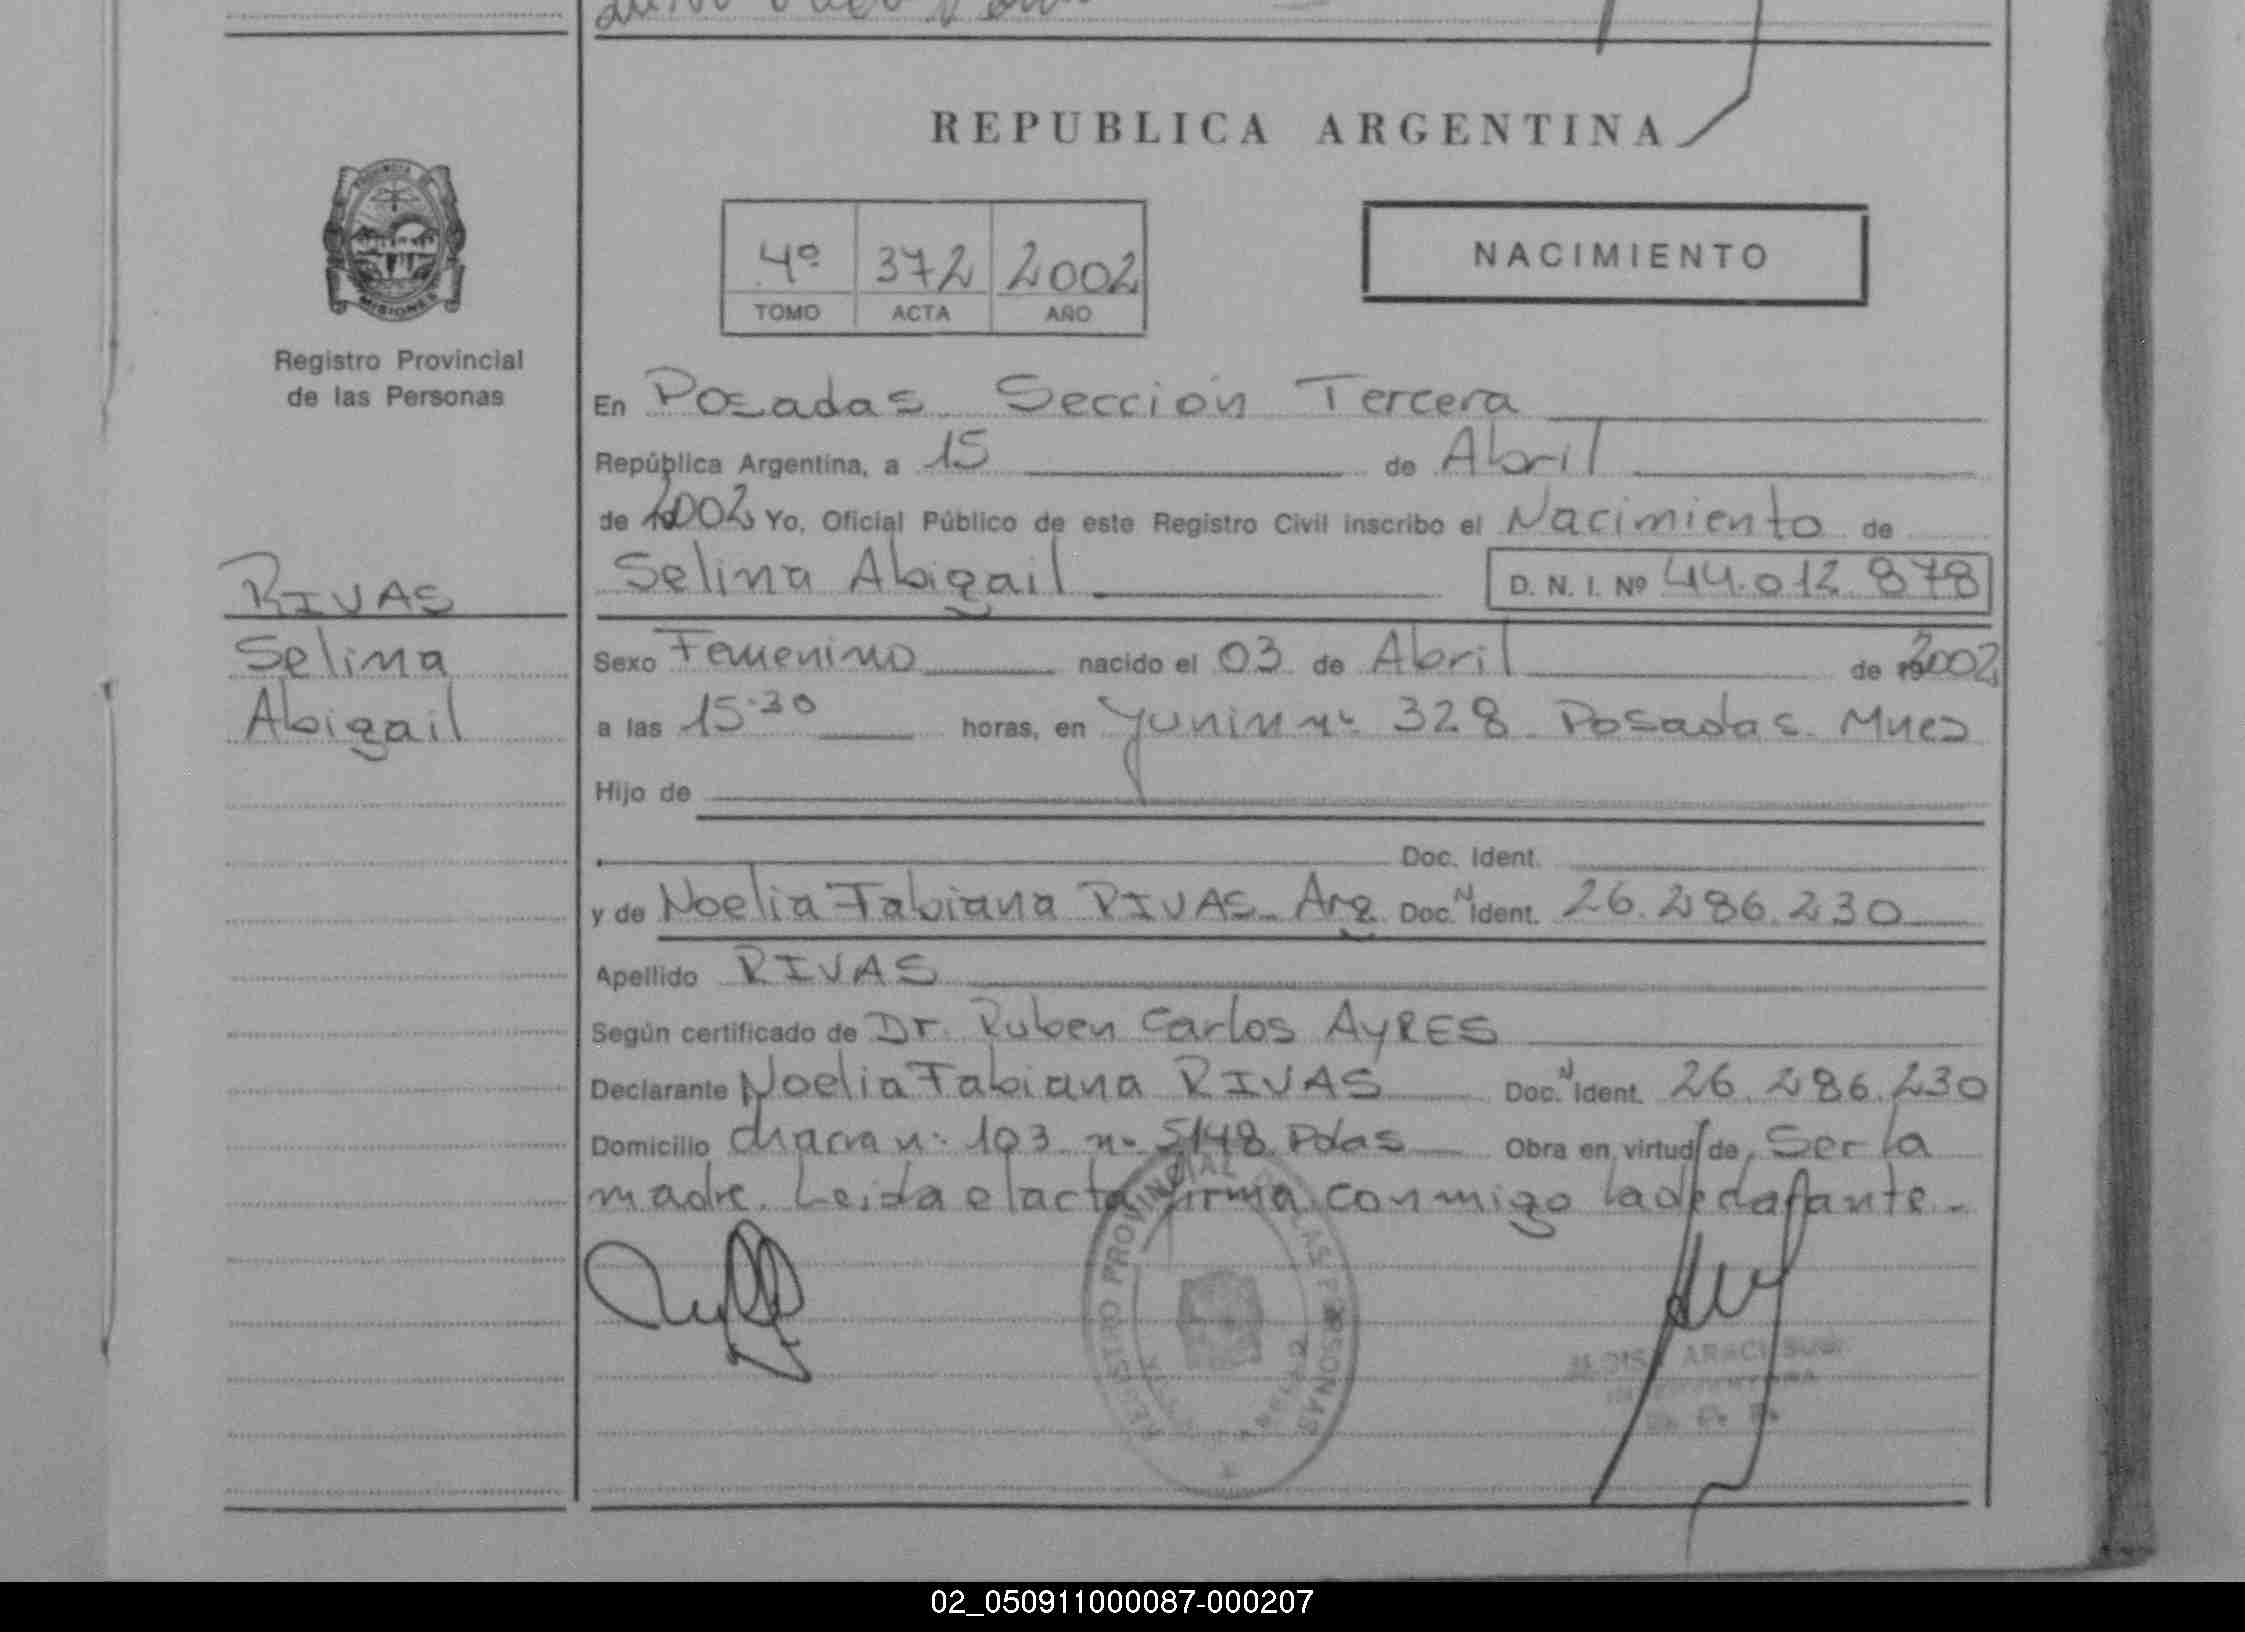 REPUBLICA ARGENTINA
MISIONES
Registro Provincial
de las Personas
4º 372 2002
TOMO ACTA AÑO
NACIMIENTO
En Posadas Sección Tercera
República Argentina, a 15 de Abril
de 2002 Yo, Oficial Público de este Registro Civil inscribo el Nacimiento de
Selina Abigail D. N. I. Nº 44.012.878
RIVAS
Selina
Abigail
Sexo Femenino nacido el 03 de Abril de 2002
a las 15.30 horas, en Yunin nº 328 Posadas Mnes
Hijo de
Doc. Ident.
y de Noelia Fabiana RIVAS Arg Doc. N Ident. 26.286.230
Apellido RIVAS
Según certificado de Dr. Ruben Carlos AyRES
Declarante Noelia Fabiana RIVAS Doc. N Ident. 26.286.230
Domicilio chacra nº 103 nº 5148 Pdas Obra en virtud de Ser la
madre. Leida el acta firma conmigo la declarante.-
REGISTRO PROVINCIAL DE LAS PERSONAS
02_050911000087-000207